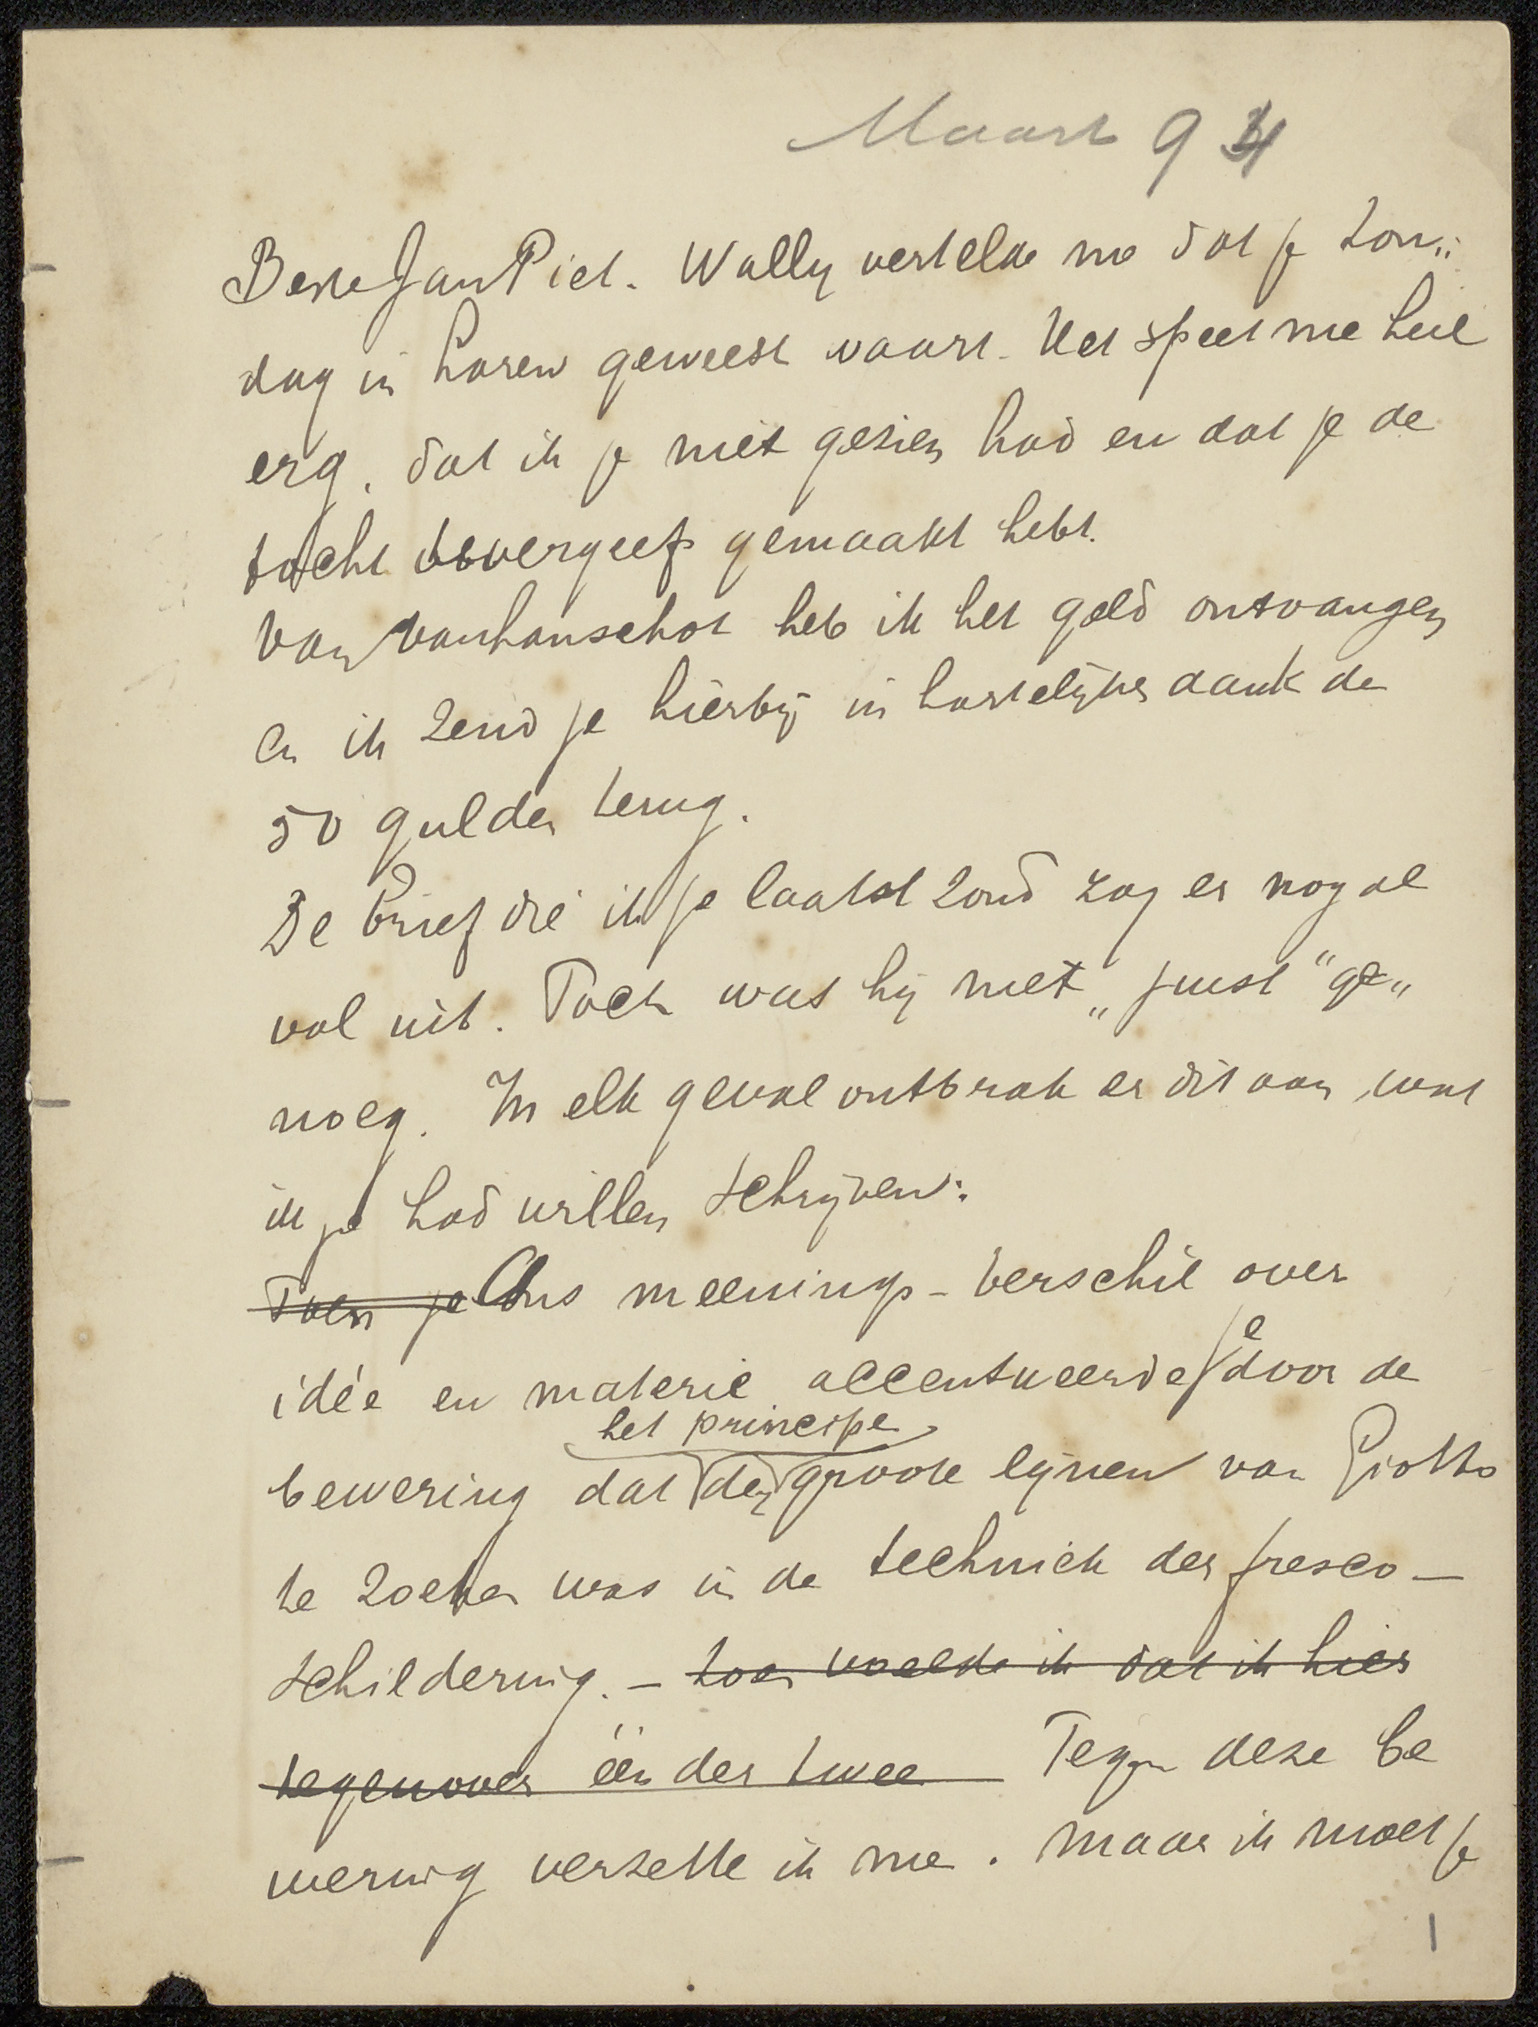 Maart 94
Beste Jan Piet. Wally vertelde me dat je Zon„
dag in Laren geweest waart. Het speet me heel
erg, dat ik je niet gezien had en dat je de
tocht tevergeefs gemaakt hebt.
Van vanlanschot heb ik het geld ontvangen
en ik zend je hierbij in hartelijken dank de
50 gulden terug.
De brief die ik je laatst zond zag er nog al
vol uit. Toch was hij niet „juist" ge„
noeg. In elk geval ontbrak er dit aan, wat
ik je had willen schrijven:
Toen je Ons meenings-verschil over
idée en materie accentueerde je door de
bewering dat het principe der groote lijnen van Giotto
te zoeken was in de techniek der fresco-
schildering. - toen voelde ik dat ik hier
tegenover één der twee Tegen deze be
wering verzette ik me. maar ik moet je
1